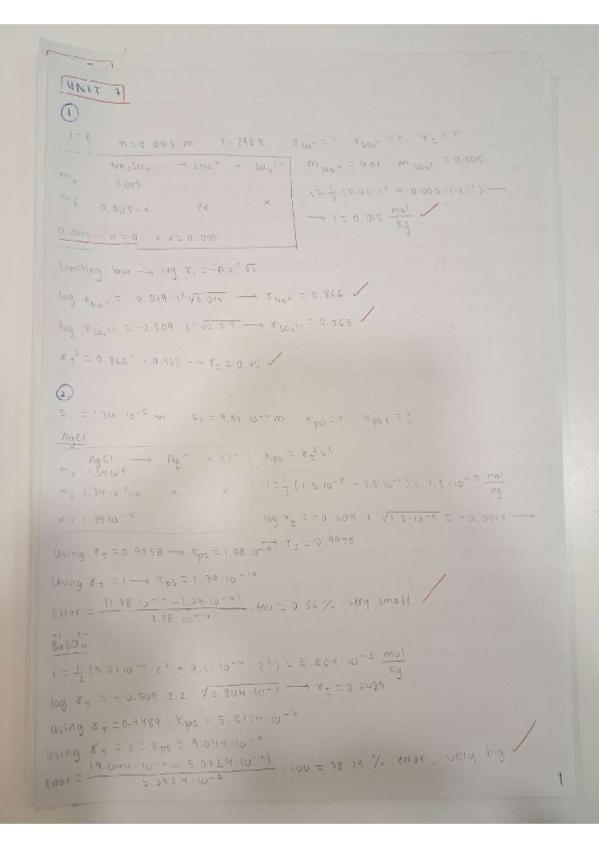 UNIT 7
①
m = 0.005 m T = 298 K γNa⁺ = ? γSO₄²⁻ = ? γ± = ?
Na₂SO₄ → 2Na⁺ + SO₄²⁻
m₀ 0.005
mf 0.005-x 2x x
0.005 - x = 0 → x = 0.005
mNa⁺ = 0.01 mSO₄²⁻ = 0.005
I = 1/2 (0.01·1² + 0.005·(-2)²) →
→ I = 0.015 mol/kg ✓
Limiting law → log γi = -A zi² √I
log γNa⁺ = -0.509·1²√0.015 → γNa⁺ = 0.866 ✓
log γSO₄²⁻ = -0.509·2²√0.015 → γSO₄²⁻ = 0.563 ✓
γ±³ = 0.866² · 0.563 → γ± = 0.75 ✓
②
= 1.34·10⁻⁵ m Kps1 = ? Kps2 = ?
AgCl
AgCl → Ag⁺ + Cl⁻
m₀ 1.34·10⁻⁵
mf 1.34·10⁻⁵-x x x
x = 1.34·10⁻⁵
Kps = γ±² s²
log γ± = -0.509 = -0.0018 →
→ γ± = 0.9958
Using γ± = 0.9958 → Kps = 1.78·10⁻¹⁰
Using γ± = 1 → Kps = 1.79·10⁻¹⁰
Error = |1.78·10⁻¹⁰ - 1.79·10⁻¹⁰| / 1.78·10⁻¹⁰ · 100 = 0.56 % very small ✓
BaSO₄
I = 1/2 (9.51·10⁻⁴·2² + 9.51·10⁻⁴·2²) = 3.804·10⁻³ mol/kg
log γ± = -0.509·2·2·√3.804·10⁻³ → γ± = 0.7489
Using γ± = 0.7489: Kps = 5.0724·10⁻⁷
Using γ± = 1: Kps = 9.044·10⁻⁷
Error = |9.044·10⁻⁷ - 5.0724·10⁻⁷| / 5.0724·10⁻⁷ · 100 = 78.29 % error, very big ✓
1